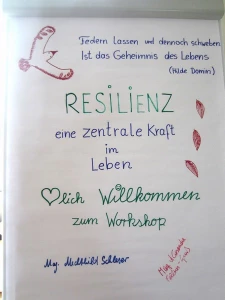 Federn lassen und dennoch schweben
Ist das Geheimnis des Lebens
(Hilde Domin)
RESILIENZ
eine zentrale Kraft
im
Leben
lich Willkommen
zum Workshop
Mag.
Mag.